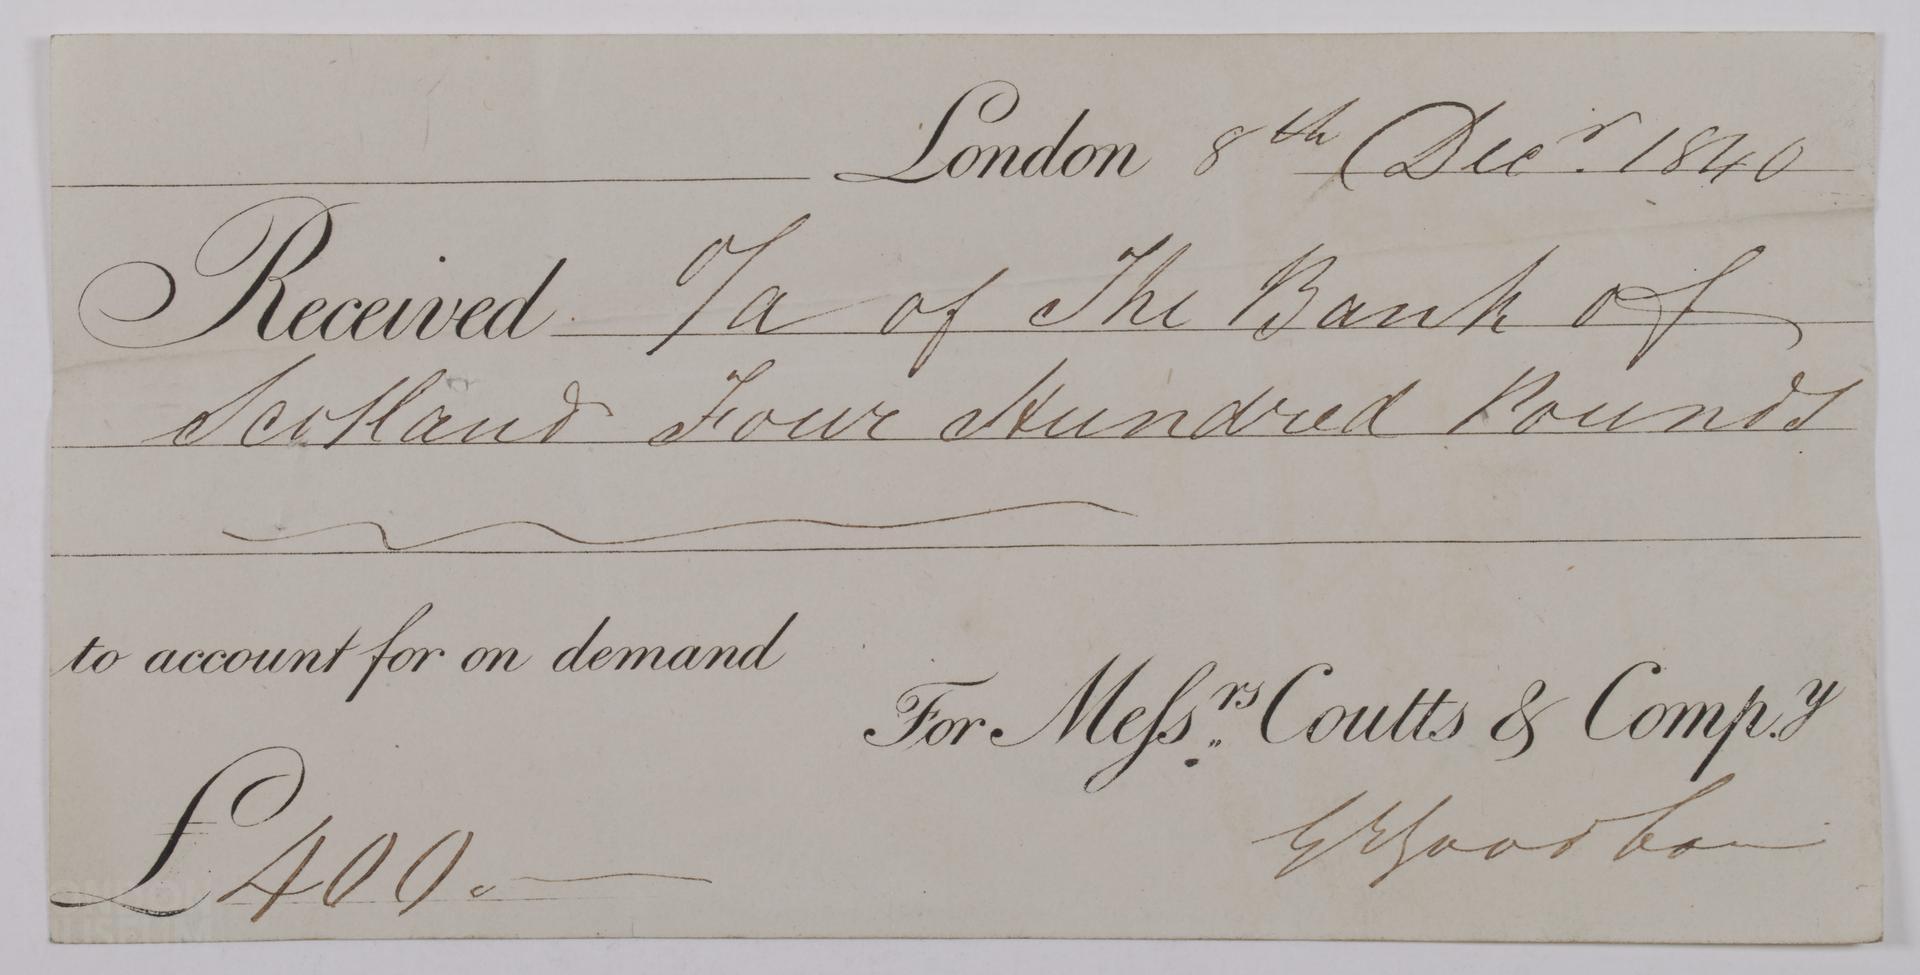 London 8th Decr. 1840
Received O/a of The Bank of
Scotland Four Hundred Pounds
to account for on demand
For Messrs. Coutts & Compy.
£400.